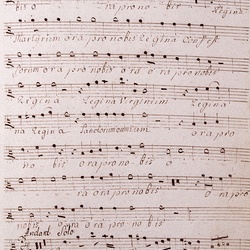 bis o ora pro no bis Regina
Martyrum ora pro nobis Regina Confess
sorum ora pro nobis ora o ra pro nobis
Regina Regina Virginum Regi
na Regina Sanctorum omnium ora pro
no bis o ra pro no bis o
ra ora pro nobis ora pro
nobis ora o ra pro no bis
Andant Solo